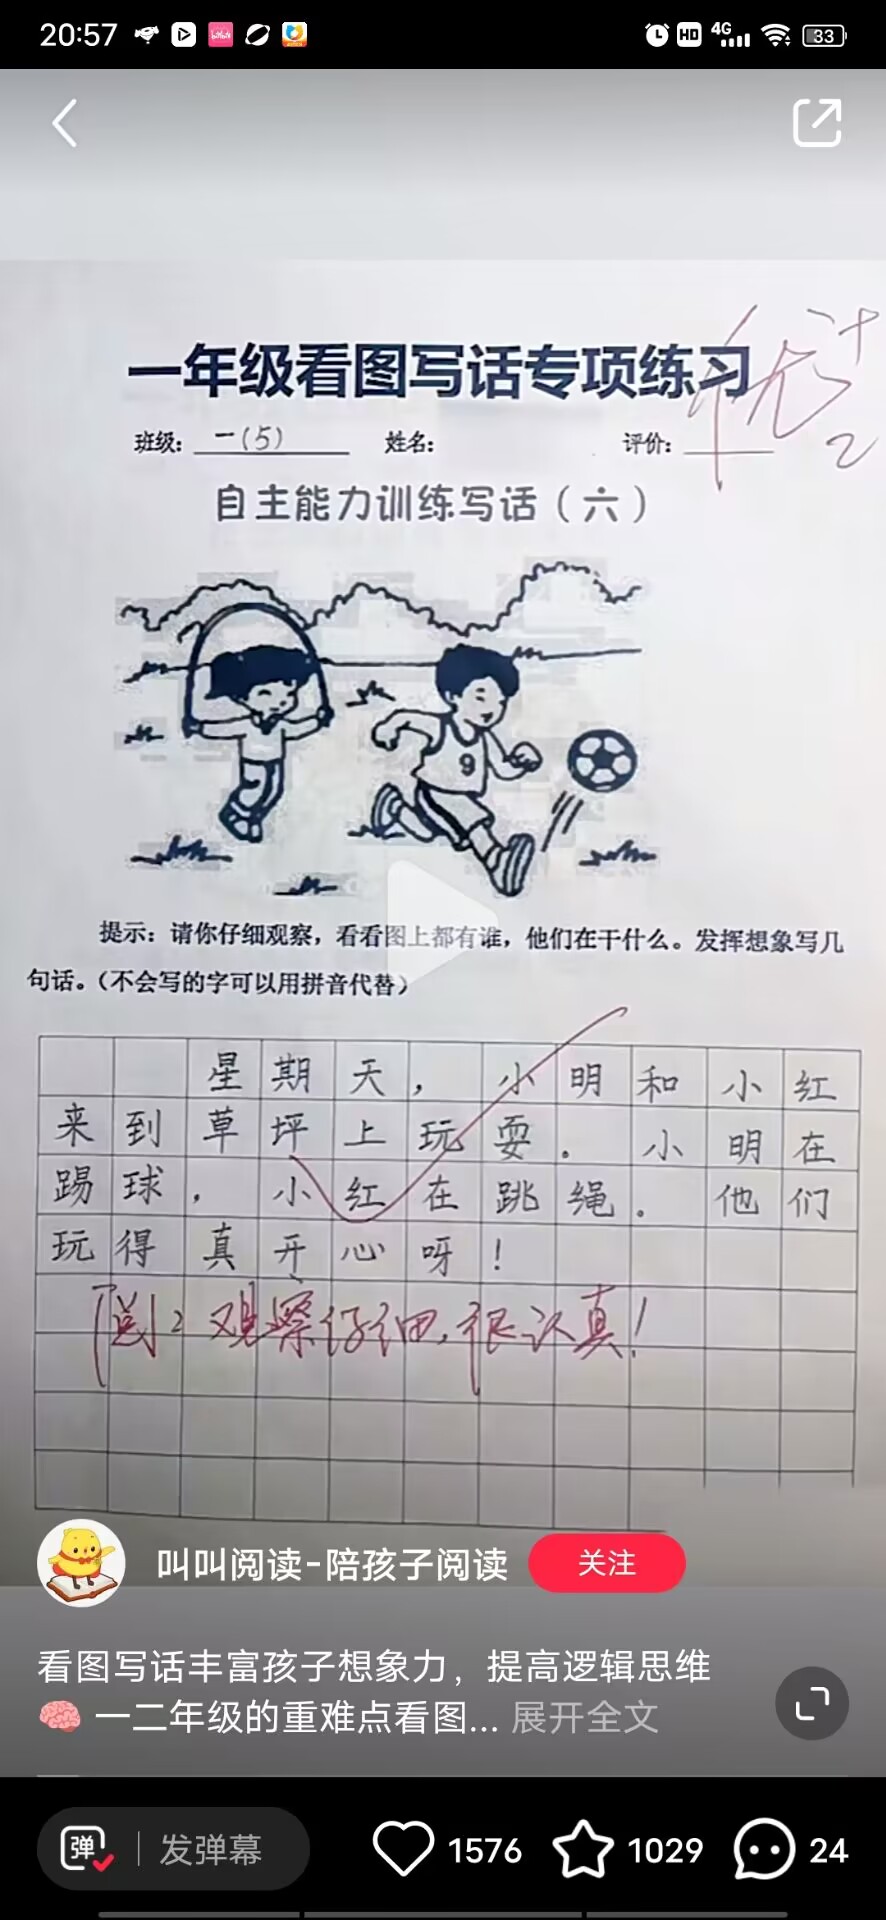 20:57
HD 4G 33
一年级看图写话专项练习
优+
2
班级: 一(5) 姓名: 评价:
自主能力训练写话（六）
9
提示：请你仔细观察，看看图上都有谁，他们在干什么。发挥想象写几
句话。（不会写的字可以用拼音代替）
星期天，小明和小红
来到草坪上玩耍。小明在
踢球，小红在跳绳。他们
玩得真开心呀！
观察仔细，很认真！
叫叫阅读-陪孩子阅读 关注
看图写话丰富孩子想象力，提高逻辑思维
一二年级的重难点看图... 展开全文
弹 发弹幕 1576 1029 24